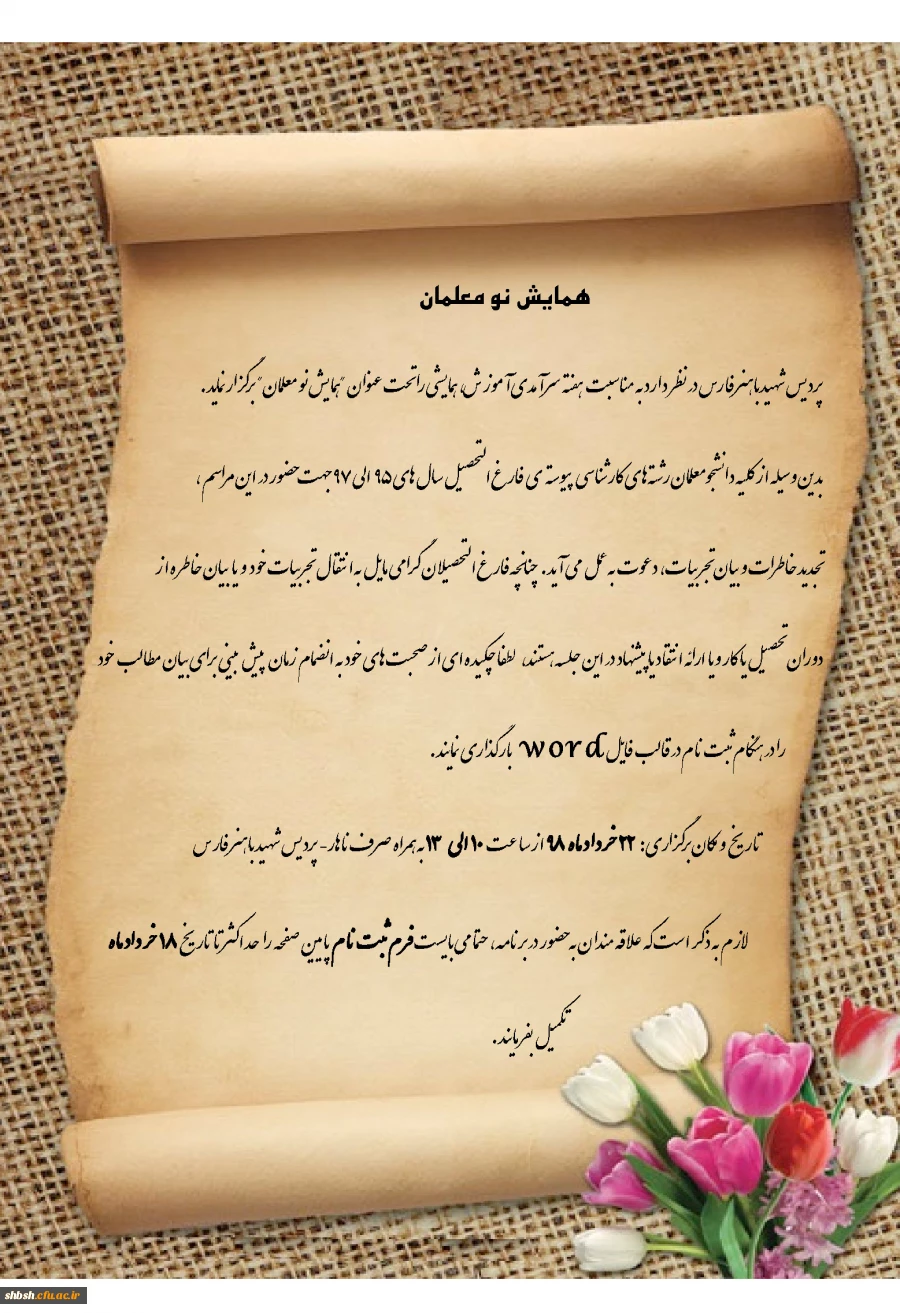 همایش نو معلمان
پردیس شهید باهنر فارس در نظر دارد به مناسبت هفته سرآمدی آموزش، همایشی را تحت عنوان "همایش نو معلمان" برگزار نماید.
بدین وسیله از کلیه دانشجو معلمان رشته های کارشناسی پیوسته ی فارغ التحصیل سال های ۹۵ الی ۹۷ جهت حضور در این مراسم ،
تجدید خاطرات و بیان تجربیات، دعوت به عمل می آید. چنانچه فارغ التحصیلان گرامی مایل به انتقال تجربیات خود و یا بیان خاطره از
دوران تحصیل یا کار و یا ارائه انتقاد یا پیشنهاد در این جلسه هستند، لطفا چکیده ای از صحبت های خود به انضمام زمان پیش بینی برای بیان مطالب خود
را در هنگام ثبت نام در قالب فایل word بارگذاری نمایند.
تاریخ و مکان برگزاری: ۲۲ خرداد ماه ۹۸ از ساعت ۱۰ الی ۱۳ به همراه صرف ناهار - پردیس شهید باهنر فارس
لازم به ذکر است که علاقه مندان به حضور در برنامه، حتما می بایست فرم ثبت نام پایین صفحه را حداکثر تا تاریخ ۱۸ خرداد ماه
تکمیل بفرمایند.
shbsh.cfu.ac.ir